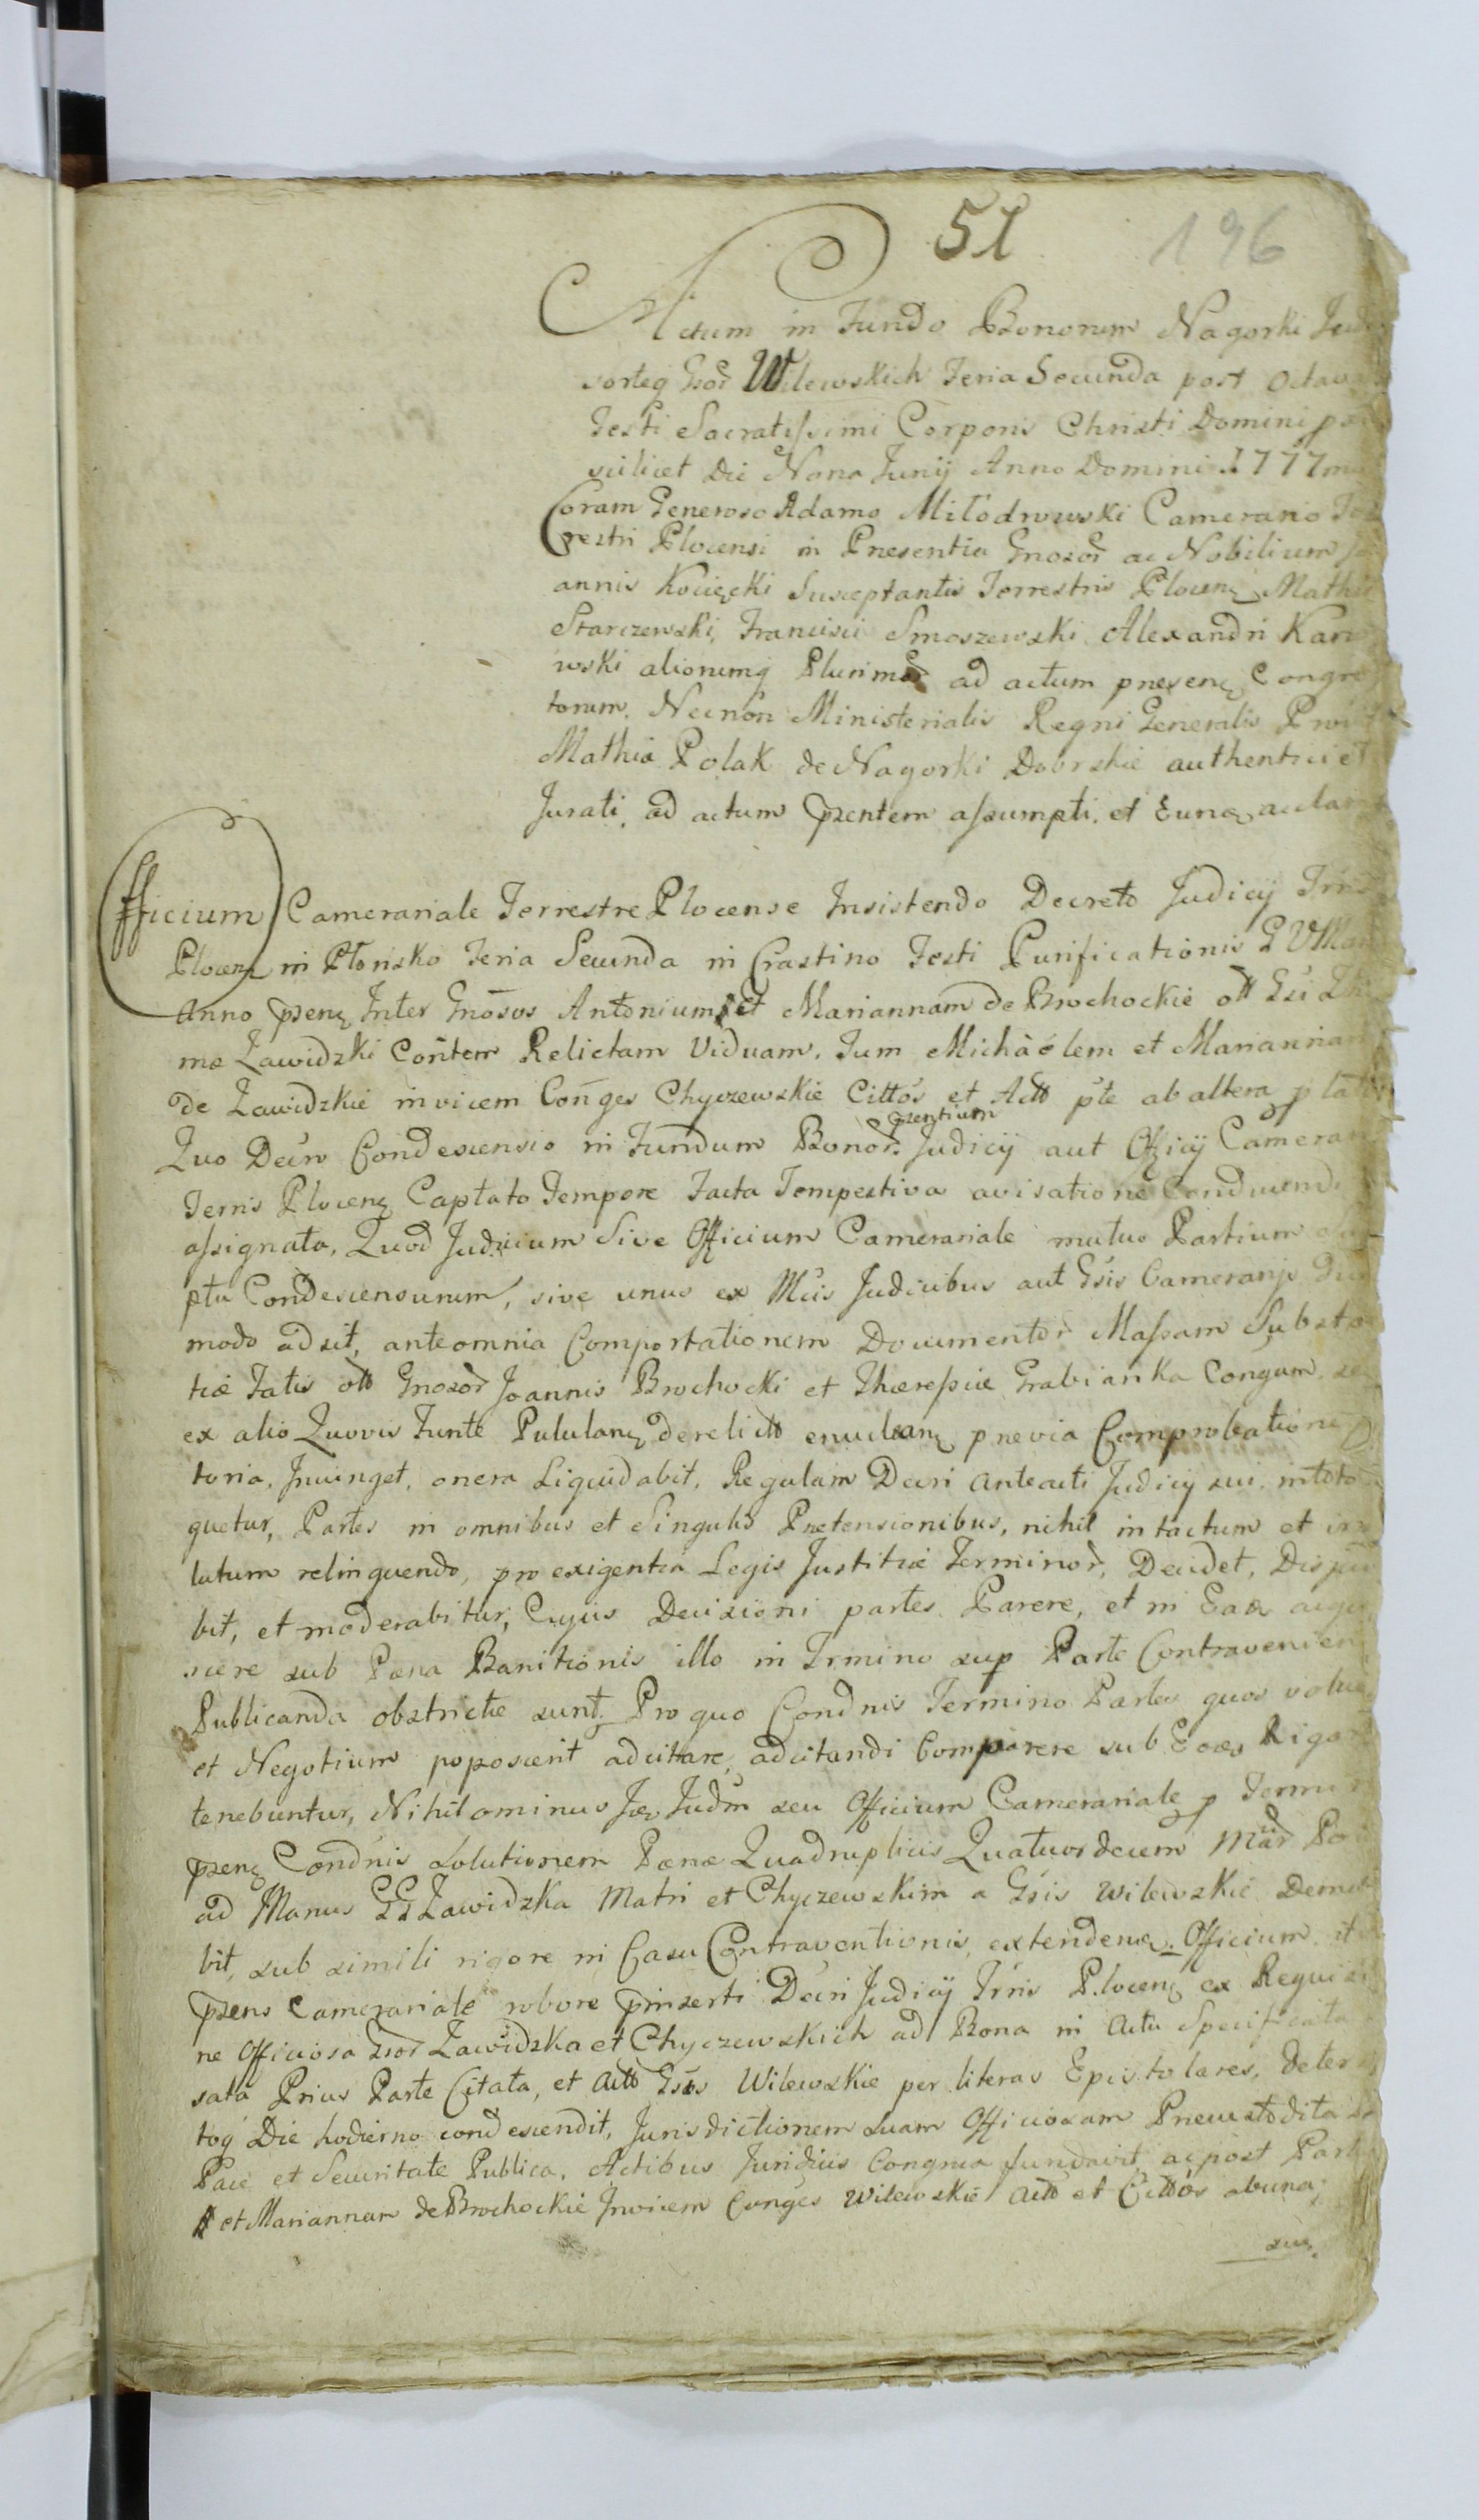 51 196
Actum in Fundo Bonorum Nagorki
sorteq Gsor Wilewskich Feria Secunda post Octava
Festi Sacratissimi Corporis Christi Domini
scilicet Die Nona Junij Anno Domini 1777
Coram Generoso Adamo Miłodrowski Camerario
restri Plocensi in Presentia Gnosor ac Nobilium
annis Kocięcki Susceptantis Terrestris Plocen Mathi
Starczewski, Francisci Smoszewski Alexandri Kar
wski aliorumq Plurimor ad actum presen Congre
torum, Necnon Ministerialis Regni Generalis
Mathia Polak de Nagorki Dobrskie authentici et
Jurati, ad actum pzentem assumpti, et Eunq aclam
Officium Camerariale Terrestre Plocense Insistendo Decreto Judicij
Plocen in Płonsko Feria Secunda in Crastino Festi Purificationis B V Mar
Anno pzen Inter Gnosos Antonium et Mariannam de Brochockie ott Gsi
mæ Zawidzki Contem Relictam Viduam, Tum Michàélem et Mariannam
de Zawidzkie invicem Conges Chyczewskie Cittos et Actt pte ab altera
pzentium
Quo Decro Condescensio in Fundum Bonor Judicij aut Officij Camerar
Terris Plocen Captato Tempore Facta Tempestiva avisatione Conducendi
assignata, Quod Judicium Sive Officium Camerariale mutuo Partium
ptu Condescensurum, sive unus ex Mcis Judicibus aut Gsis Camerarijs
modo adsit, ante omnia Comportationem Documentor Massam Substa
tiæ Fatis ott Gnosor Joannis Brochocki et Thæresiæ Grabianka Congum,
ex alio Quovis Funte Pululan derelictt enuclean previa Comprobatione
toria, Jnvinget, onera Liquidabit, Regulam Decri anteacti Judicij sui, intoto
quetur, Partes in omnibus et Singulis Pretensionibus, nihil intactum et
lutum relinquendo, pro exigentia Legis Justitiæ Terminor, Decidet,
bit, et moderabitur, Cujus Decisioni partes Parere, et in Ea
scere sub Pæna Banitionis illo in Trmino sup Parte Contravenien
Publicanda obstrictæ sunt. Pro quo Condnis Termino Partes quos
et Negotium poposcerit adcitare, adcitandi Comparere sub Rigor
tenebuntur, Nihilominus Judm seu Officium Camerariale p Termi
pzen Condnis Solutionem Pænæ Quadruplicis Quatuordecem Mar
ad Manus GG Zawidzka Matri et Chyczewskim a Gsis Wilewskie
bit, sub simili rigore in Casu Contraventionis, extenden. Officium
pzens Camerariale robore prinserti Decri Judicij Trris Plocen ex
ne Officiosa Gsor Zawidzka et Chyczewskich ad Bona in Actu Specificata
sata Prius Parte Citata, et Actt Gsos Wilewskie per literas Epistolares,
toq Die hodierno condescendit, Jurisdictionem suam Officiosam
Pace et Securitate Publica, Actibus Juridicis Congrua fundavit, ac post Part
et Mariannam de Brochockie Jnvicem Conges Wilewskie actt et Cittos abuna